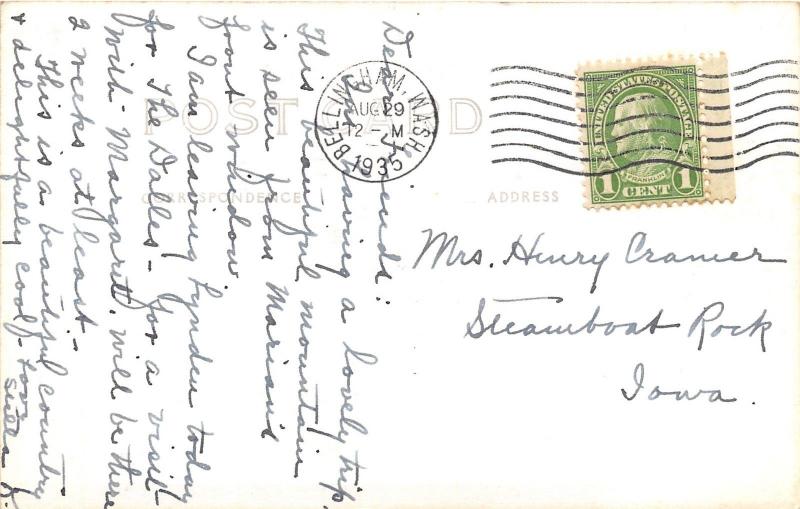 POST CARD
CORRESPONDENCE
ADDRESS
BELLINGHAM, WASH.
AUG 29
12 - M
1935
UNITED STATES POSTAGE
FRANKLIN
1 CENT 1
Dear Friends:
having a lovely trip,
This beautiful mountain
is seen from Marian's
front window.
I am leaving Lynden today
for The Dalles - for a visit
with Margaret. Will be there
2 weeks at least -
This is a beautiful country
& delightfully cool - Love
Mrs. Henry Cramer
Steamboat Rock
Iowa.